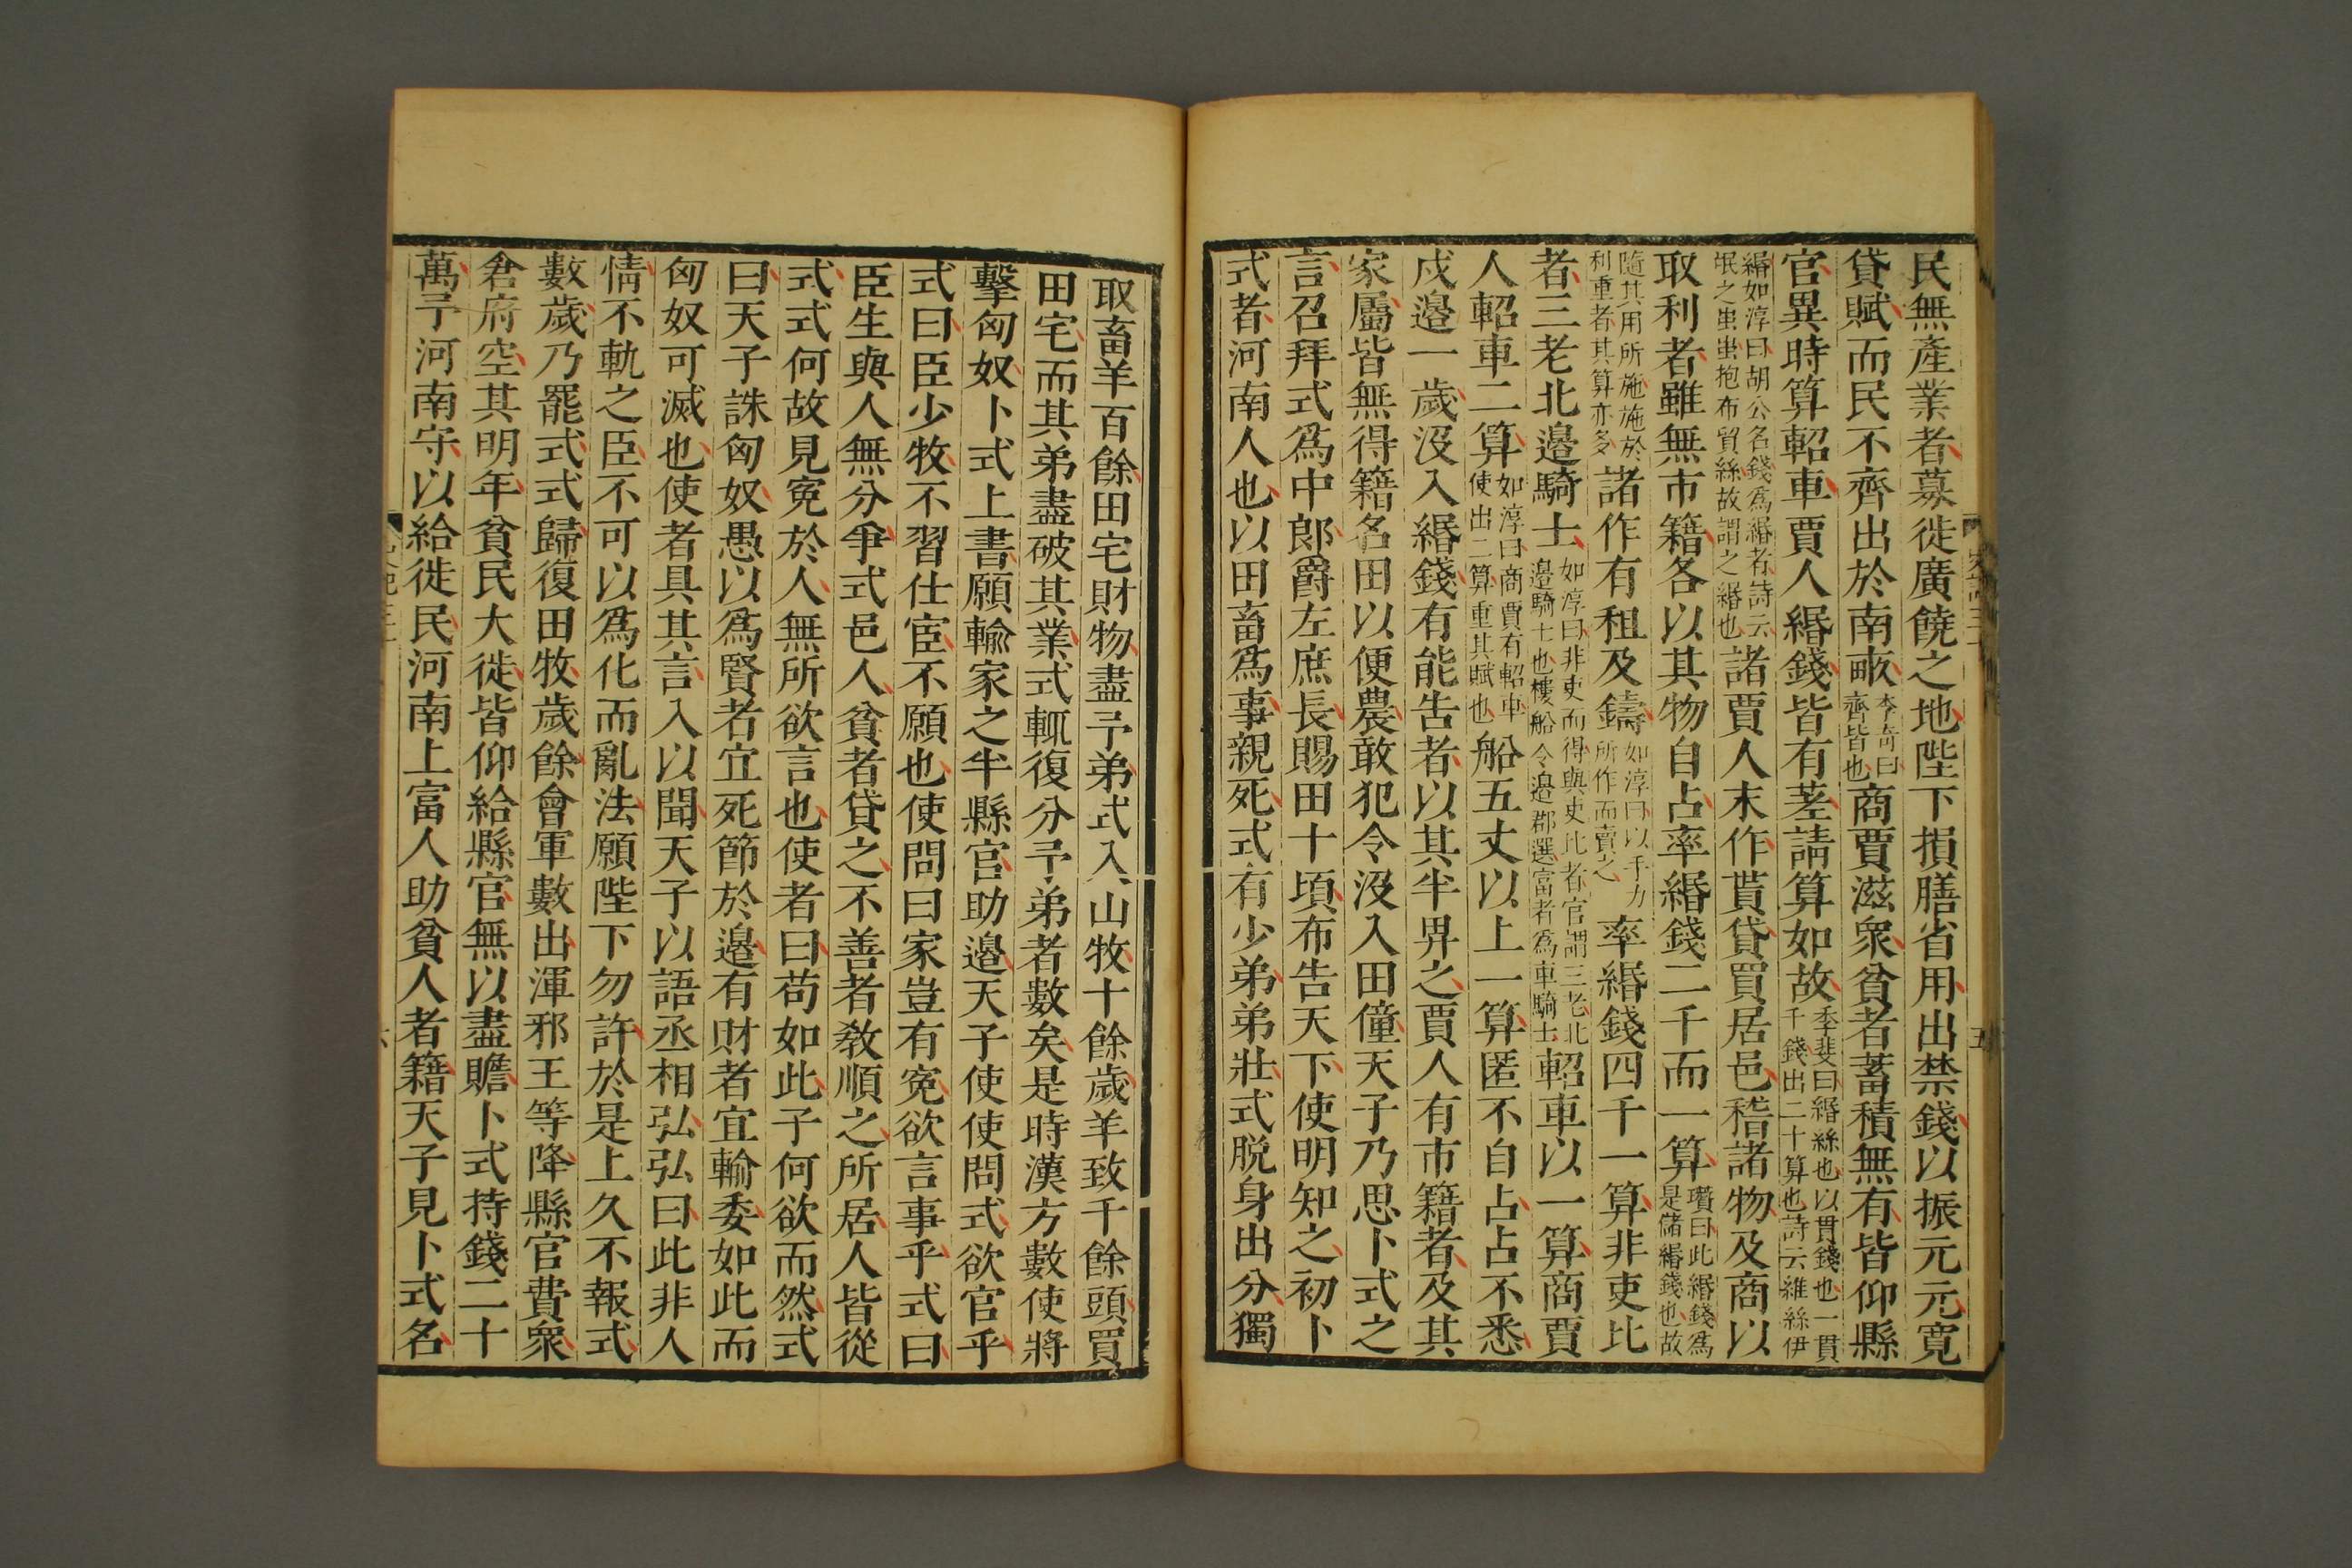 民無產業者募徙廣饒之地陛下損膳省用出禁錢以振元元寬
貸賦而民不齊出於南畝李奇曰齊皆也商賈滋衆貧者蓄積無有皆仰縣
官異時算軺車賈人緡錢皆有差請算如故李斐曰緡絲也以貫錢也一貫千錢出二十算也詩云維絲伊
緡如淳曰胡公名錢爲緡者詩云氓之蚩蚩抱布貿絲故謂之緡也諸賈人末作貰貸買居邑稽諸物及商以
取利者雖無市籍各以其物自占率緡錢二千而一算瓚曰此緡錢爲是儲緡錢也故
隨其用所施施於利重者其算亦多諸作有租及鑄如淳曰以手力所作而賣之率緡錢四千一算非吏比
者三老北邉騎士如淳曰非吏而得與吏比者官謂三老北邉騎士也樓船令邉郡選富者爲車騎士軺車以一算商賈
人軺車二算如淳曰商賈有軺車使出二算重其賦也船五丈以上一算匿不自占占不悉
戍邉一歲沒入緡錢有能告者以其半畀之賈人有市籍者及其
家屬皆無得籍名田以便農敢犯令沒入田僮天子乃思卜式之
言召拜式爲中郎爵左庶長賜田十頃布告天下使明知之初卜
式者河南人也以田畜爲事親死式有少弟弟壯式脫身出分獨
取畜羊百餘田宅財物盡予弟式入山牧十餘歲羊致千餘頭買
田宅而其弟盡破其業式輒復分予弟者數矣是時漢方數使將
擊匈奴卜式上書願輸家之半縣官助邉天子使使問式欲官乎
式曰臣少牧不習仕宦不願也使問曰家豈有寃欲言事乎式曰
臣生與人無分爭式邑人貧者貸之不善者教順之所居人皆從
式式何故見寃於人無所欲言也使者曰苟如此子何欲而然式
曰天子誅匈奴愚以爲賢者宜死節於邉有財者宜輸委如此而
匈奴可滅也使者具其言入以聞天子以語丞相弘弘曰此非人
情不軌之臣不可以爲化而亂法願陛下勿許於是上久不報式
數歲乃罷式式歸復田牧歲餘會軍數出渾邪王等降縣官費衆
倉府空其明年貧民大徙皆仰給縣官無以盡贍卜式持錢二十
萬予河南守以給徙民河南上富人助貧人者籍天子見卜式名